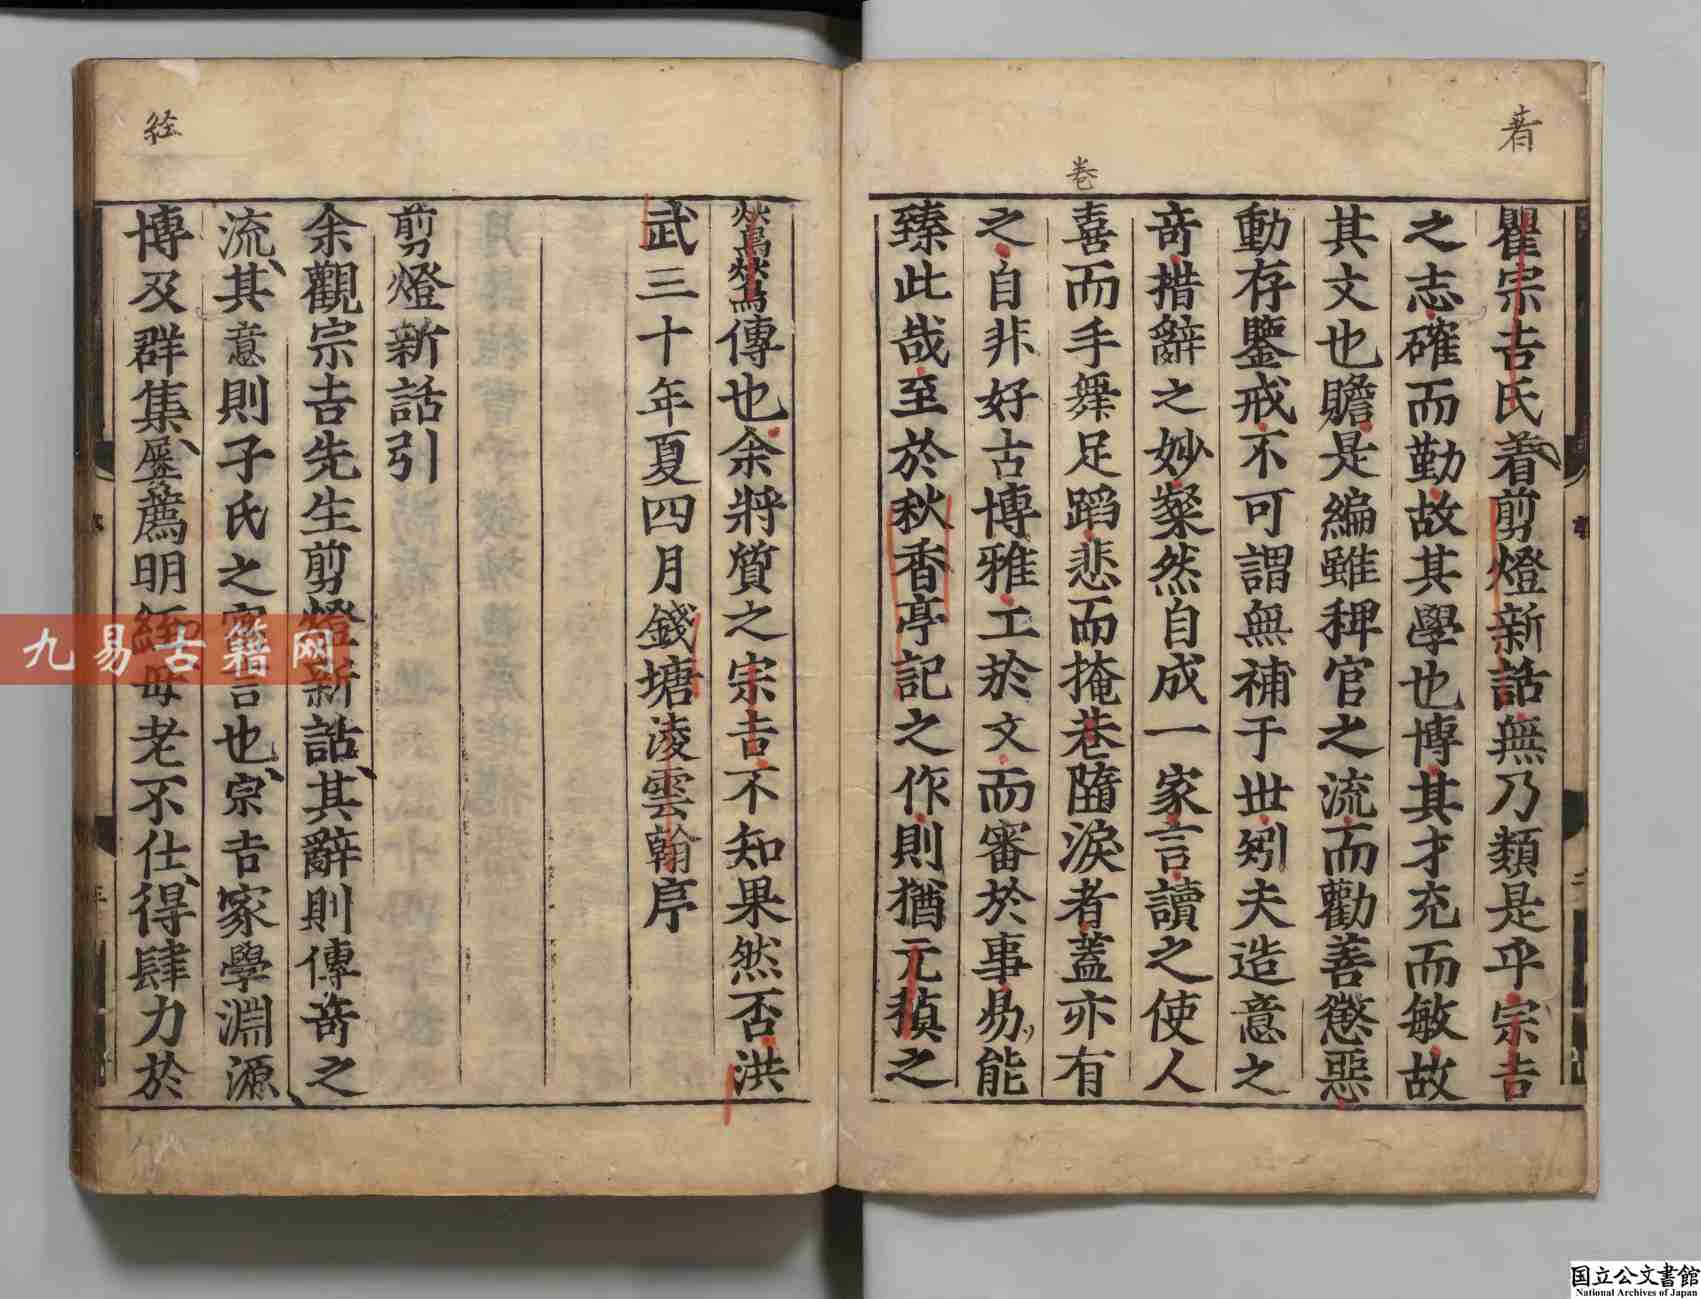 着
瞿宗吉氏着剪燈新話無乃類是乎宗吉
之志確而勤故其學也博其才充而敏故
其文也贍是編雖稗官之流而勸善懲惡
動存鑒戒不可謂無補于世矧夫造意之
竒措辭之妙粲然自成一家言讀之使人
卷
喜而手舞足蹈悲而掩巷墮淚者蓋亦有
之自非好古博雅工於文而審於事曷能
臻此哉至於秋香亭記之作則猶元稹之
鶯鶯傳也余將質之宗吉不知果然否洪
武三十年夏四月錢塘淩雲翰序
剪燈新話引
余觀宗吉先生剪燈新話其辭則傳竒之
流其意則子氏之寓言也宗吉家學淵源
経
博及群集屢薦明經母老不仕得肆力於
九易古籍网
国立公文書館
National Archives of Japan